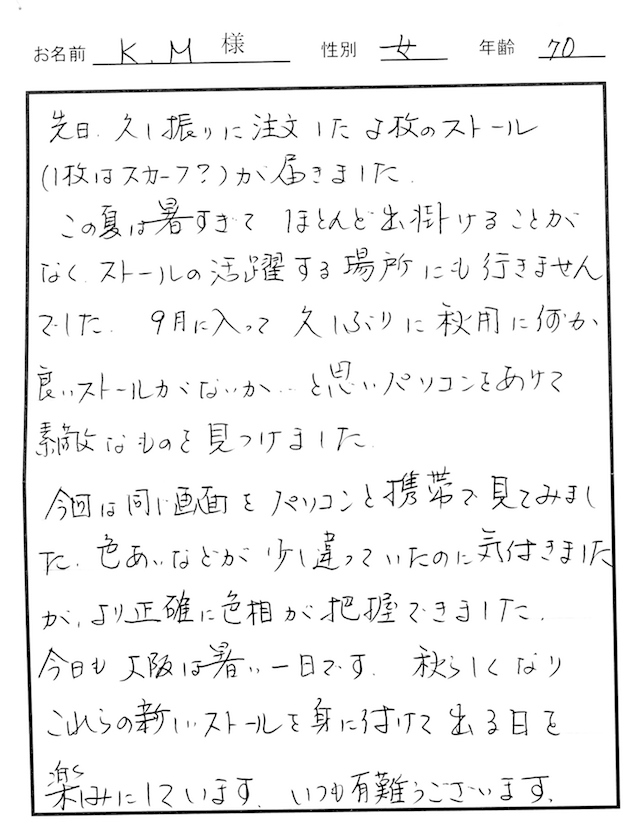 お名前 K.M 様 性別 女 年齢 70
先日、久し振りに注文した4枚のストール
(1枚はスカーフ?)が届きました.
この夏は暑すぎて ほとんど出掛けることが
なく、ストールの活躍する場所にも行きません
でした. 9月に入って 久しぶりに秋用に何か
良いストールがないか…と思いパソコンをあけて
素敵なものを見つけました.
今回は同じ画面をパソコンと携帯で見てみまし
た. 色あいなどが少し違っていたのに気付きました
が、より正確に色相が把握できました.
今日も大阪は暑い一日です. 秋らしくなり
これらの新しいストールを身に付けて出る日を
楽しみにしています. いつも有難うございます.